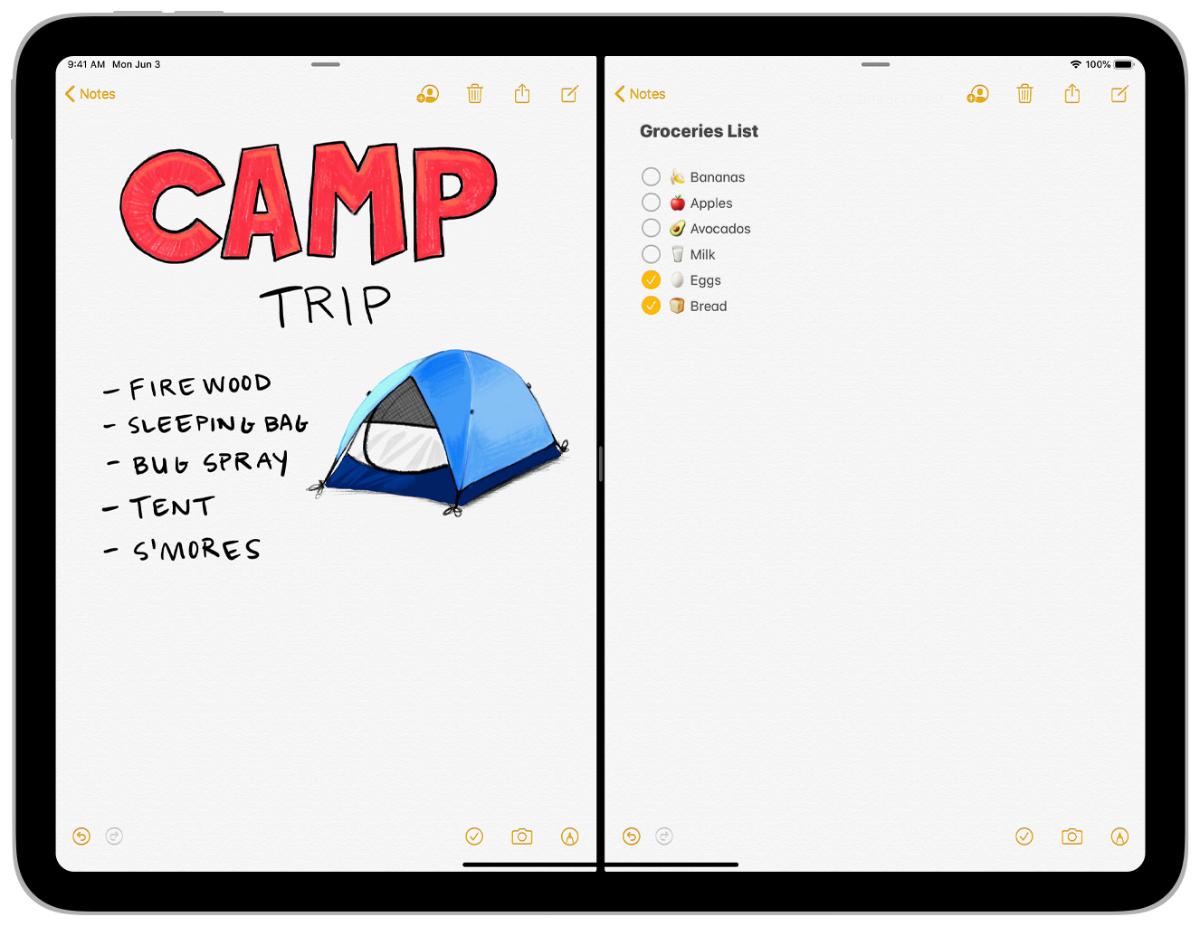 9:41 AM Mon Jun 3
100%
Notes
CAMP
TRIP
- FIREWOOD
- SLEEPING BAG
- BUG SPRAY
- TENT
- S'MORES
Notes
Groceries List
🍌 Bananas
🍎 Apples
🥑 Avocados
🥛 Milk
🥚 Eggs
🍞 Bread